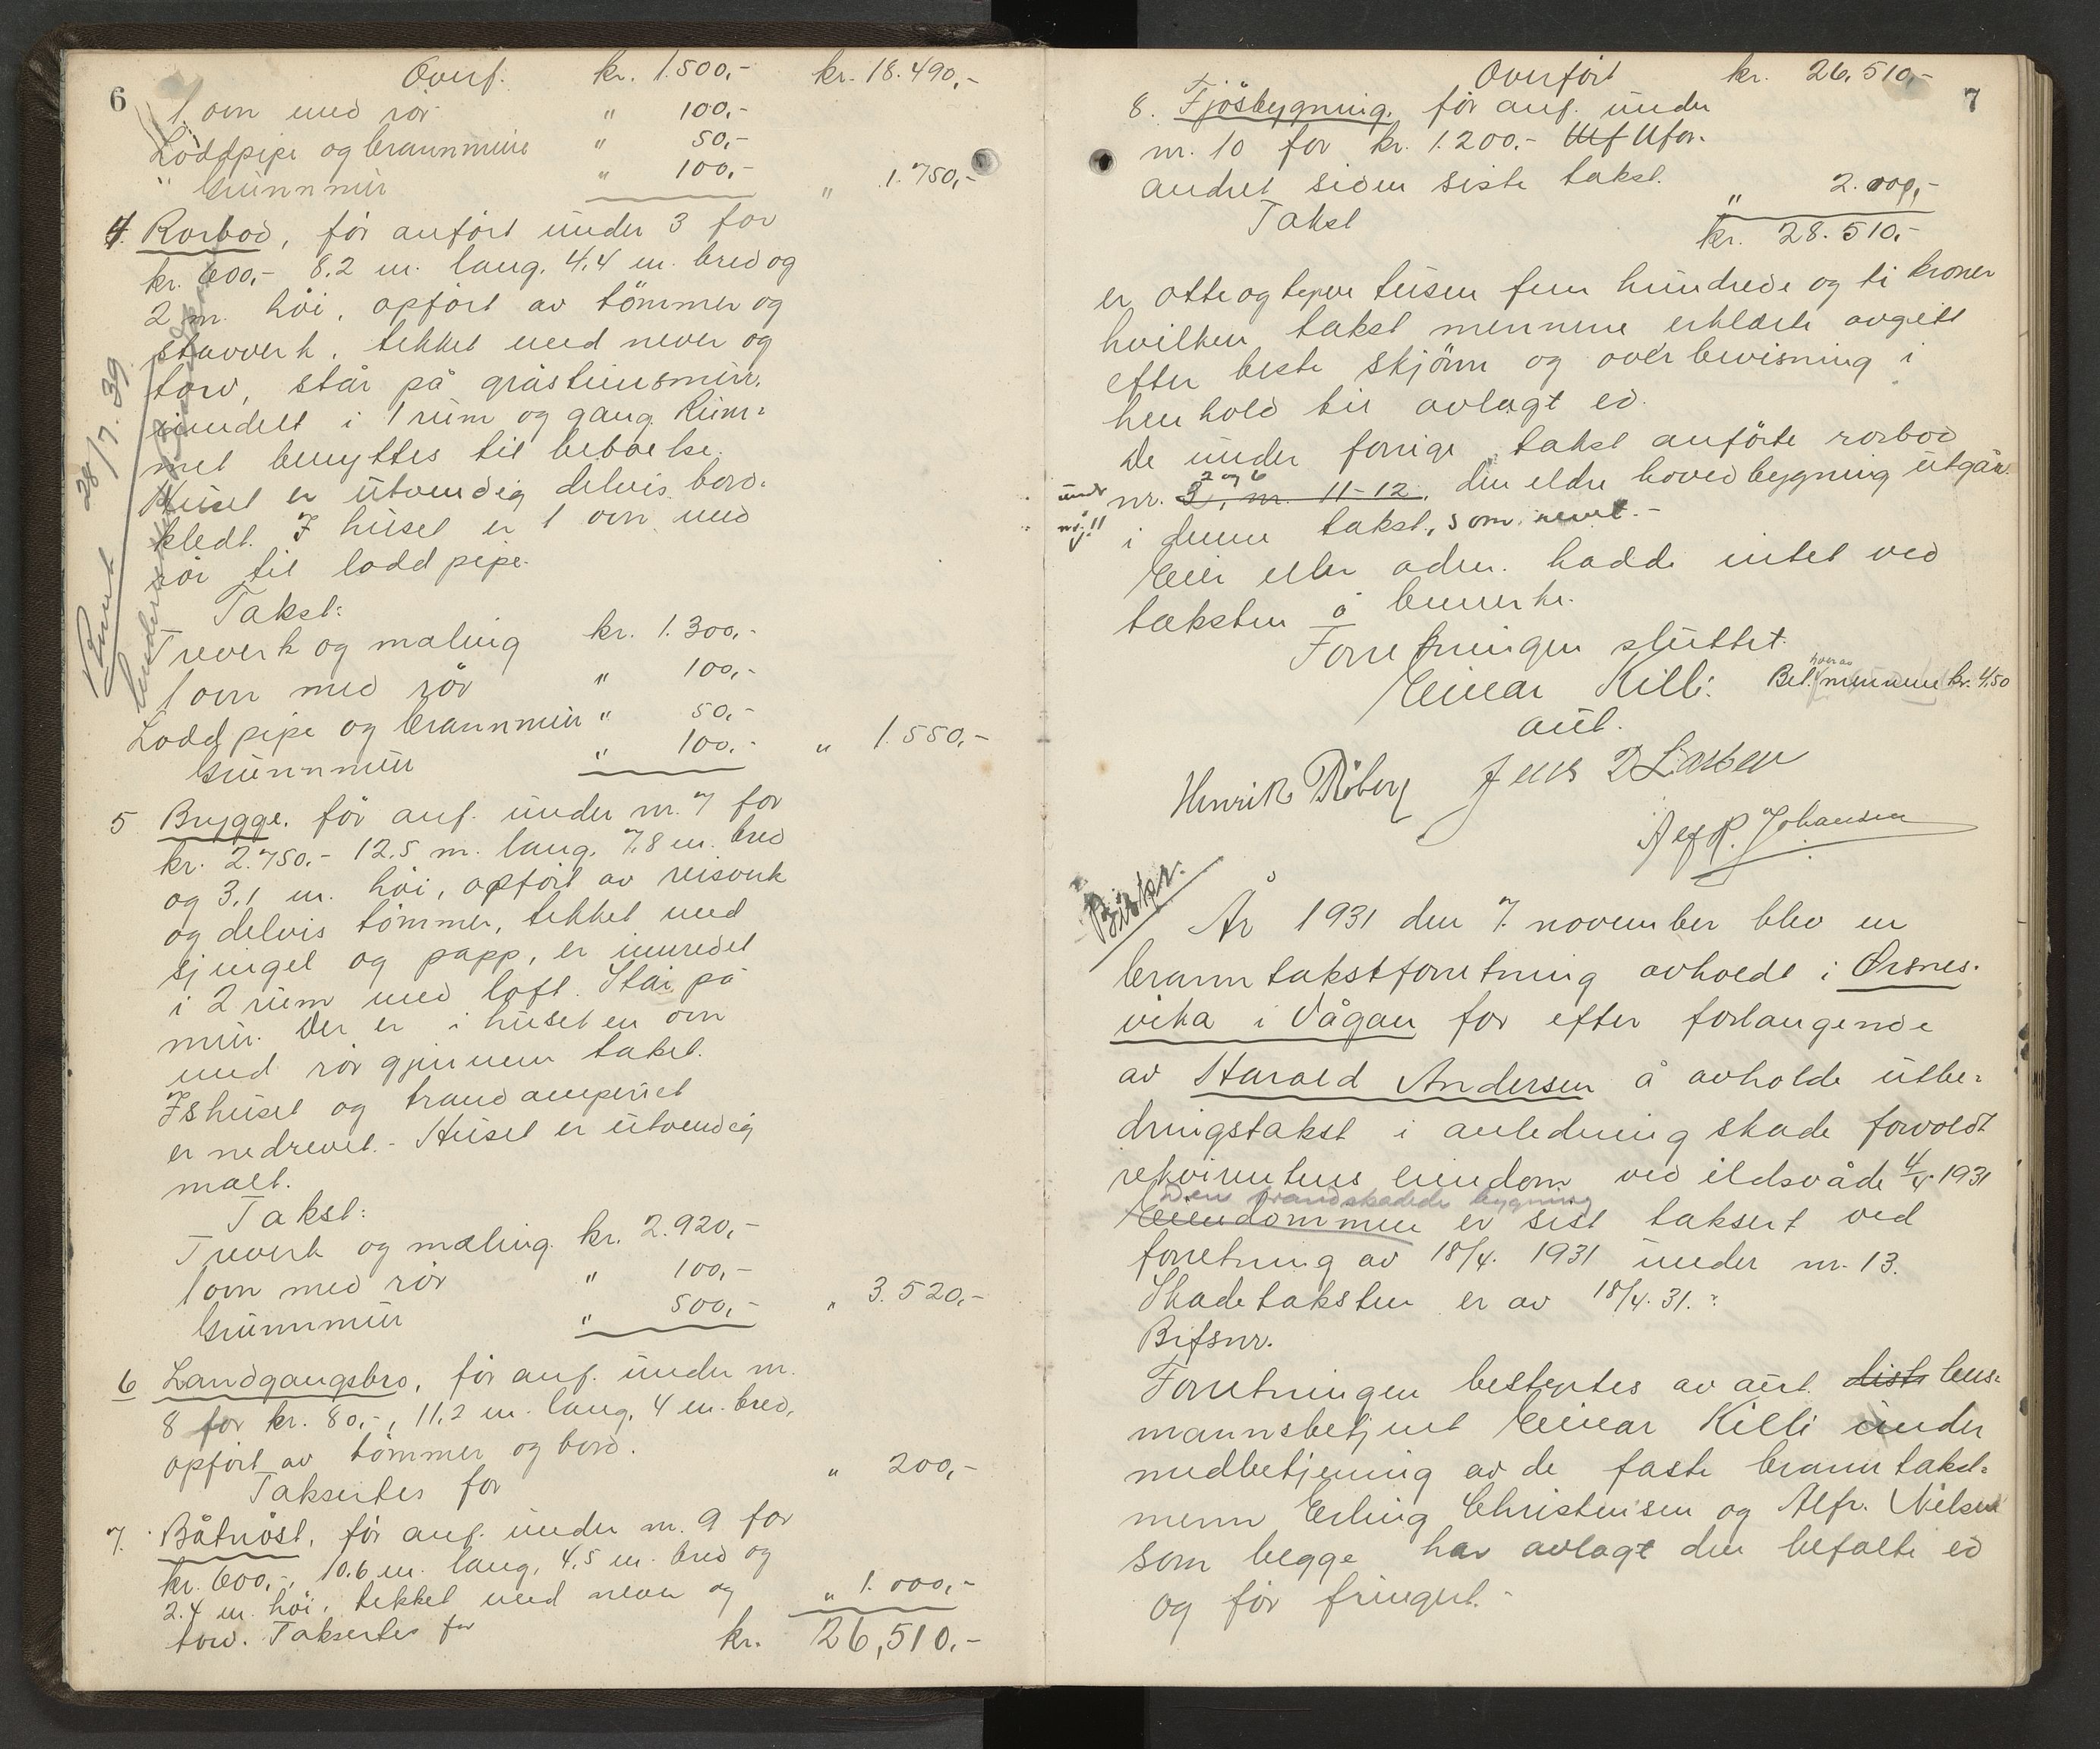 6
Overf. kr. 1.500,- kr. 18.490,-
1 ovn med rör " 100,-
Loddpipe og brannmur " 50,-
" Grunnmur " 100,- " 1.750,-
4. Rorbod, för anfört under 3 for
kr. 600,- 8,2 m. lang, 4,4 m. bred og
2 m. höi, opfört av tömmer og
stavverk, tekket med never og
torv, står på gråsteinsmur,
inndelt i 1 rum og gang. Rum-
met benyttes til beboelse.
Huset er utvendig delvis bord-
kledt. I huset er 1 ovn med
rör til loddpipe.
Takst:
Treverk og maling kr. 1.300,-
1 ovn med rör " 100,-
Loddpipe og brannmur " 50,-
Grunnmur " 100,- " 1.550,-
28/7. 39
5 Brygge, för anf. under nr. 7 for
kr. 2.750.- 12,5 m. lang, 7,8 m. bred
og 3,1 m. höi, opfört av reisverk
og delvis tömmer, tekket med
sjingel og papp, er innredet
i 2 rum med loft. Står på
mur. Der er i huset en ovn
med rör gjennem taket.
Ishuset og trandamperiet
er nedrevet. - Huset er utvendig
malt.
Takst:
Treverk og maling. kr. 2.920,-
1 ovn med rör " 100,-
Grunnmur " 500,- " 3.520,-
6 Landgangsbro, för anf. under nr.
8 for kr. 80,-, 11,2 m. lang, 4 m. bred,
opfört av tömmer og bord.
Taksertes for " 200,-
7. Båtnöst, för anf. under nr. 9 for
kr. 600,-, 10.6 m. lang, 4,5 m. bred og
2.4 m. höi, tekket med never og
torv. Taksertes for " 1.000,-
kr. 26,510,-
7
Overfört kr. 26,510,-
8. Fjösbygning, för anf. under
nr. 10 for kr. 1.200.- Uf Ufor-
andret siden siste takst. " 2.000,-
Takst kr. 28.510,-
er otte og tyve tusen fem hundrede og ti kroner
hvilken takst mennene erklærte avgitt
efter beste skjönn og overbevisning i
henhold til avlagt ed.
De under forrige takst anförte rorbod
2 og 6
nr. 3, nr. 11-12, den eldre hovedbygning utgår
under
i denne takst, som nevnt.-
Eier eller adm. hadde intet ved
taksten å bemerke.
Forretningen sluttet.
Einar Killi. Bet. hver av mennene kr. 4,50
aut.
Henrik Röberg Jens D Larsen
Alf R. Johansen
År 1931 den 7. november blev en
branntakstforretning avholdt i Örsnes-
vika i Vågan for efter forlangende
av Harald Andersen å avholde utbe-
dringstakst i anledning skade forvoldt
rekvirentens eiendom ved ildsvåde 4/4. 1931
Den brandskadede bygning
Eiendommen er sist taksert ved
forretning av 18/4. 1931 under nr. 13.
Skadetaksten er av 18/4. 31.-
Bifsnr.
Forretningen bestyrtes av aut. distr lens-
mannsbetjent Einar Killi under
medbetjening av de faste branntakst-
menn Erling Christensen og Alfr. Nilsen
som begge har avlagt den befalte ed
og för fungert.-